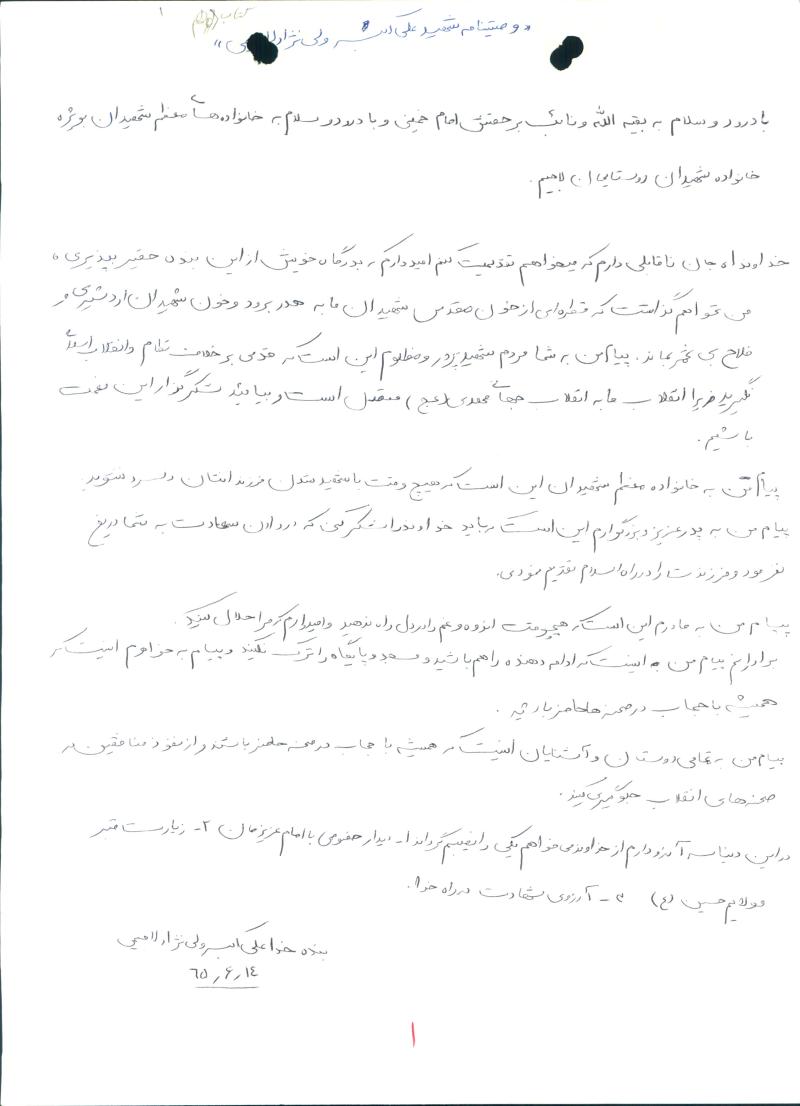 ۱
«وصیتنامه شهید علی اکبر ولی نژاد لاهیمی»
با درود و سلام به بقیه الله و نائب برحقش امام خمینی و با درود و سلام به خانواده های معظم شهیدان بویژه
خانواده شهیدان روستایمان لاهیم.
خداوندا جان ناقابلی دارم که میخواهم تقدیمت کنم امیدوارم بدرگاه خویش از این بنده حقیر بپذیری
من نخواهم گذاشت که قطره‌ای از خون مقدس شهیدان ما به هدر برود و خون شهیدان اردشیری و
فلاح بی ثمر بماند. پیام من به شما مردم شهید پرور و مظلوم این است که قدمی بر خلاف نظام و انقلاب اسلامی
نگیرید زیرا انقلاب ما به انقلاب جهانی مهدی (عج) متصل است و بیائید شکرگزار این نعمت
باشیم.
پیام من به خانواده معظم شهیدان این است که هیچ وقت با شهید شدن فرزندانتان دلسرد نشوید
پیام من به پدر عزیز و بزرگوارم این است که باید خداوند را شکر کنی که در دادن سعادت به شما دریغ
نفرمود و فرزندت را در راه اسلام تقدیم نمودی.
پیام من به مادرم این است که هیچوقت اندوه و غم را در دل راه ندهید و امیدوارم که مرا حلال کنید.
برادرانم پیام من به اینست که ادامه دهنده راهم باشید و مسجد و پایگاه را ترک نکنید و پیام به خواهرم اینست که
همیشه با حجاب در صحنه ها حاضر باشید.
پیام من به تمامی دوستان و آشنایان اینست که همیشه با حجاب در صحنه حاضر باشند و از نفوذ منافقین در
صحنه های انقلاب جلوگیری کنید.
در این دنیا سه آرزو دارم از خداوند می خواهم یکی را نصیبم گرداند ۱- دیدار حضوری با امام عزیزمان ۲- زیارت قبر
مولایم حسین (ع) ۳- آرزوی شهادت در راه خدا.
بنده خدا علی اکبر ولی نژاد لاهیمی
۶۵٫۶٫۱۴
۱